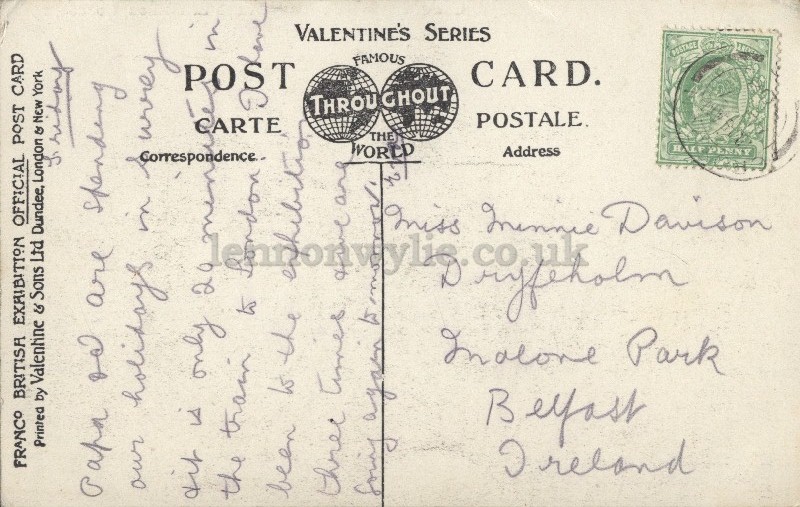 VALENTINE'S SERIES
FAMOUS
POST CARD.
THROUGHOUT
CARTE POSTALE.
THE
WORLD
Correspondence. Address
HALFPENNY
FRANCO BRITISH EXHIBITION OFFICIAL POST CARD
Printed by Valentine & Sons Ltd Dundee, London & New York
Friday
Papa & I are spending
our holidays in Surrey
it is only 20 minutes in
the train to London I have
been to the exhibition
three times & we are
going again tomorrow.
Miss Minnie Davison
Dryfeholm
Malone Park
Belfast
Ireland
lennonwylie.co.uk